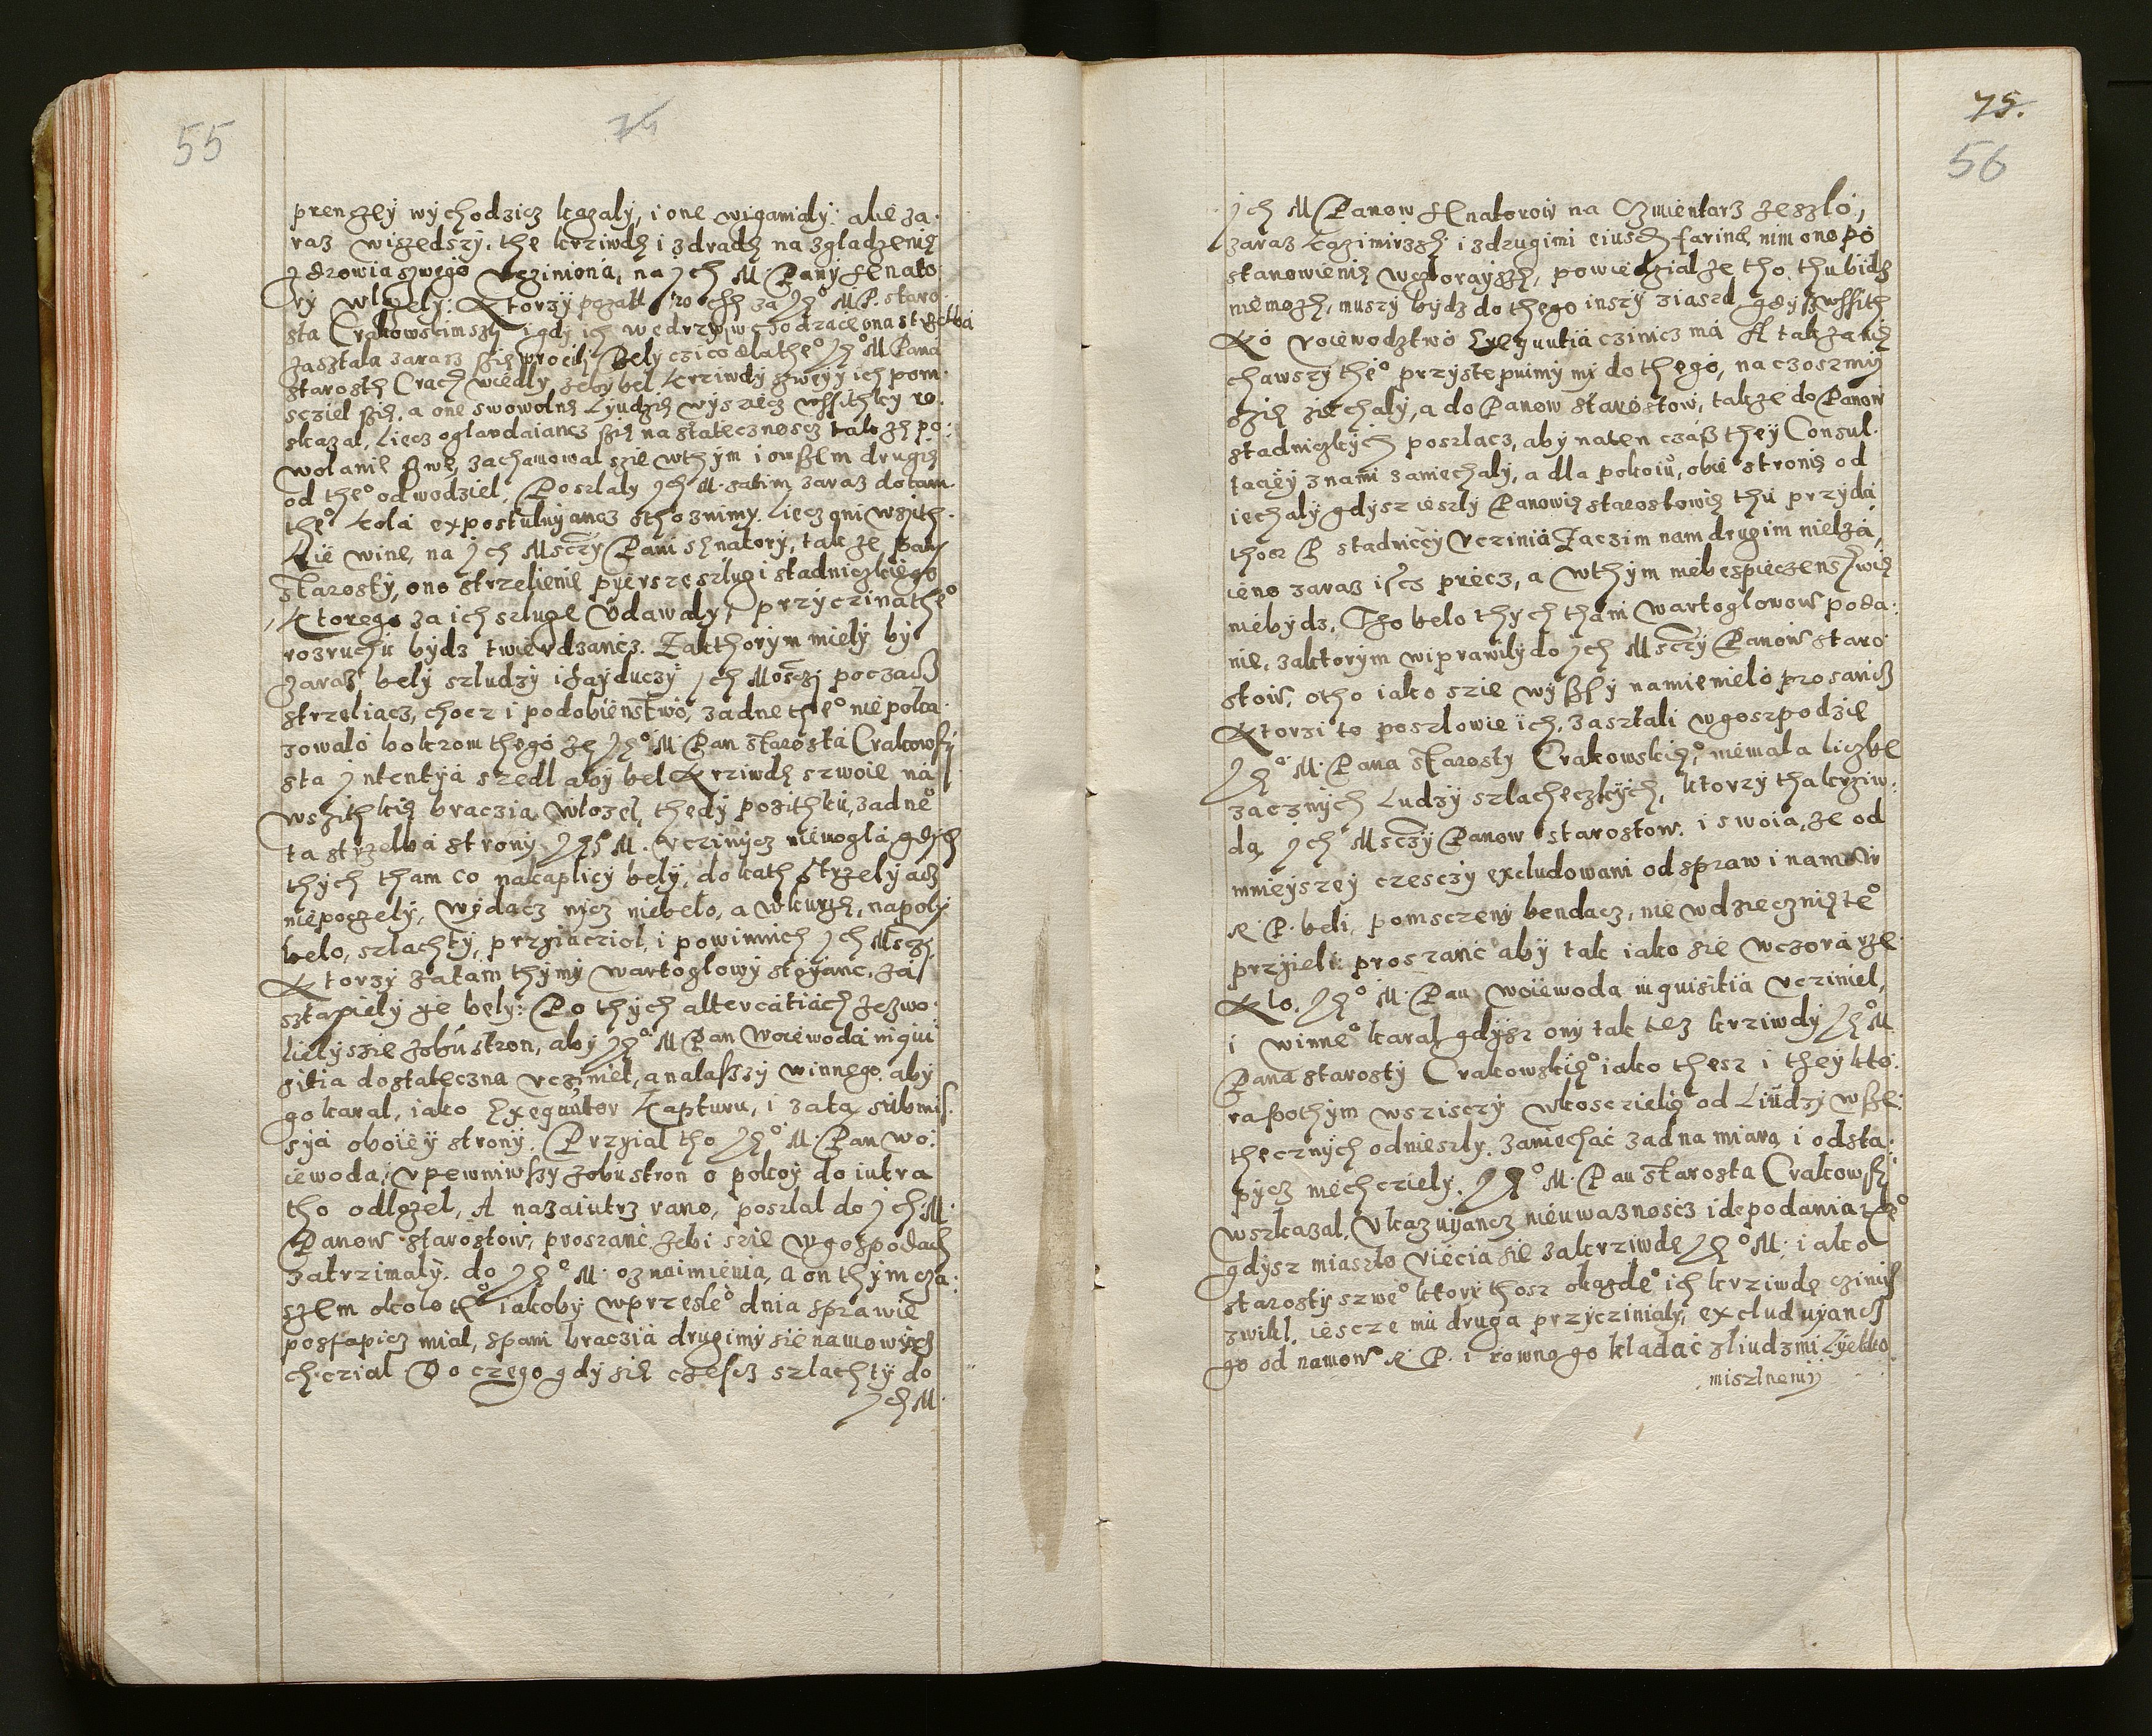 55
74
prenzey wychodzicz kazaly, i one wiganialy: abe za-
raz wiszedszy, the krziwdę i zdradę na zgladzenię
zdrowia szwego vcziniona, na Jch M. Pany senato
ry wlozely: Ktorzy za Jeº M. P. staro
sta Crakowskim szly i gdy ich wedrzwi wchodzace ona strzelba
zasztala zaraz szię wrocily Bely czi co dlatheº Jeº M Pana
starostę Crac wiedly zeby bel krziwdy szwey y ich pom-
scziel szię, a one swowolnę Lyudzię wysziecz wssithky ro-
skazal, Liecz oglandaiancz szię na statecznoscz tak ze po-
wolanie swe, zachamowal szie wthym i owszem drugię
od theº odwodziel. Poszlaly Jch M. zatim zaraz do tam-
theº kola expostuluyancz otho znimy. Liecz oni wszith-
kie wine, na Jch Msczy Pani senatory, tak ze pany
starosty, ono strzelienie pierwsze szlugi stadniczkiego
Ktorego za ich szluge vdawaly, przyczina theº
rozruchu bydz twierdzancz. Zakthorym miely by
zaraz bely szludzy i hayduczy Jch Mosczi poczacz
strzeliacz, chocz i podobienstwo, zadne theº nie poka-
zowalo bo krom thego ze Jeº M. Pan starosta Crakowsky
sta Jntentyą szedl aby bel krziwdę szwoie na
wszithkię braczia wlozel, thedy pozithku, zadneº
ta strzelba strony Jeº M. vczinicz niemogla gdysz
thych tham co nakaplicy bely, dokath strzelyacz
niepoczely, wydacz nycz niebelo, a wkurzę, napoly
belo, szlachty, przyiaciol, i powinnich Jch Msczi,
Ktorzy zatam thymy wartoglowy stoyanc, za
sztapiely ye bely: Po thych altercatiach zezwo-
lielyszie zobu stron, aby Jeº M Pan Woiewoda inqui
sitia dostateczna vcziniel, a nalaszszy winnego aby
go karal, iako Exequutor Kapturu, i zata submis-
syą oboiey strony. Przyial tho Jeº M. Pan wo-
iewoda, vpewniwszy zobustron o pokoy do iutra
tho odlozel, A nazaiutrz rano, poszlal do Jch M.
Panow starostow, proszanc zebi szie wgospodach
zatrzimaly do Jeº M. oznaimienia, a on thym cza-
szem okolo teº iakoby wprzesleº dnia sprawie
postapicz mial, spani braczia drugimy sie namowycz
chcial Do czego gdy się czescz szlachty do
Jch M.
75.
56
Jch M Panow senatorow na Czmientarz zeszlo,
zaraz kazimirzsky i zdrugimi eiusdem farinae, nim ono po
stanowienię wczorayszę, powiedzial ze tho, thu bydz
niemoze, muszy bydz do thego inszy ziazd gdysz wssith
ko voiewodztwo Exequutia czinicz ma A tak zanię
chawszy theº przystepuimy my do thego, na czoszmy
szię ziechaly, a do Panow starostow, takze do Panow
stadniczkych poszlacz, aby na ten czasz they Consul-
taciey znami zaniechaly, a dla pokoiu, obie stronię od
iechaly gdysz iesly Panowię starostowię thu przyda
thosz P stadniccy vczinia Zaczim nam drugim nielza,
ieno zaraz iscz precz, a wthym niebespieczenstwię
niebydz, Tho belo thych tham wartoglowow poda-
nie, zaktorym wiprawily do Jch Msczy Panow staro
stow, otho iako szie wyszszy namienielo prosancz
Ktorzi to poszlowie ich, zasztali wgoszpodzie
Jeº M. Pana starosty Crakowskieº, niemala liczbe
zacznych Ludzy szlacheczkych, ktorzy tha krziw-
da Jch Msczy Panow starostow, i swoia, ze od
mnieyszey czesczy excludowani od spraw i namow
R. P. beli, pomszczeny bendacz, nie wdziecznię teº
przyieli proszanc aby tak iako sie wczora rze-
klo, Jeº M. Pan woiewoda inquisitia vcziniel,
i winneº karal gdysz ony tak tez krziwdy Jeº M
Pana starosty Crakowskieº iako thesz i they kto-
ra pothym wszisczy wkosczielie od Liudzy wsze-
thecznych odnieszly, zaniechac zadna miara i odsta-
picz niechcziely. Jeº M. Pan starosta Crakowsky
wszkazal, vkazuyancz nieuwaznoscz ich podania teº
gdysz miaszto viecia sie zakrziwdę Jeº M. iako
starosty szweº ktory thosz okazdeº ich krziwdę czinicz
zwikl, iescze mu druga przycziniały, excluduyancz
go od namow R. P. i rowno go kladac zliudzmi Lyekko
miszlnemy